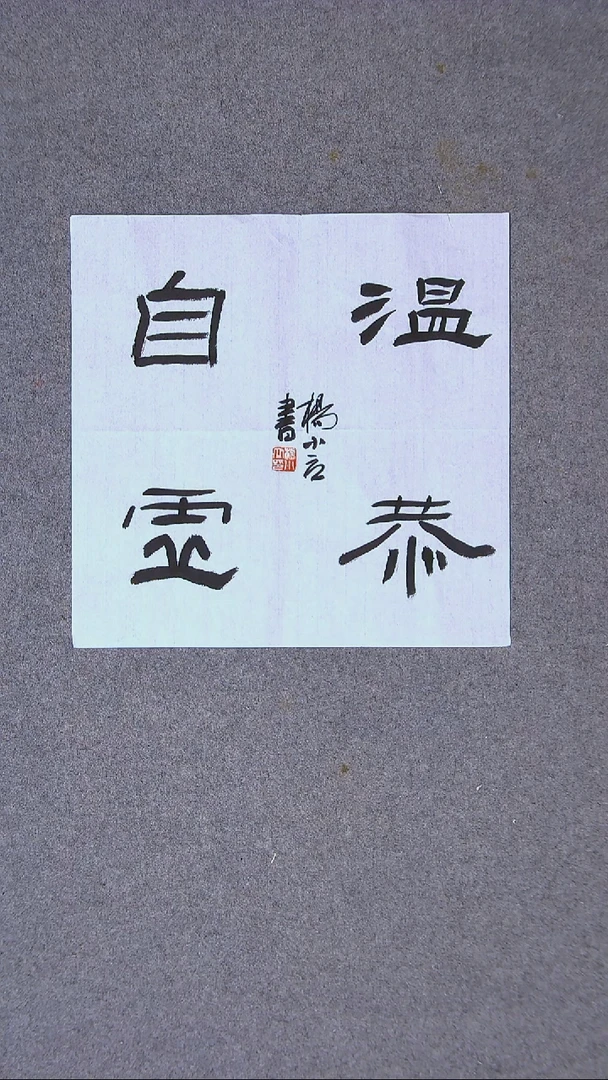 温恭
自虚
楊小言
書